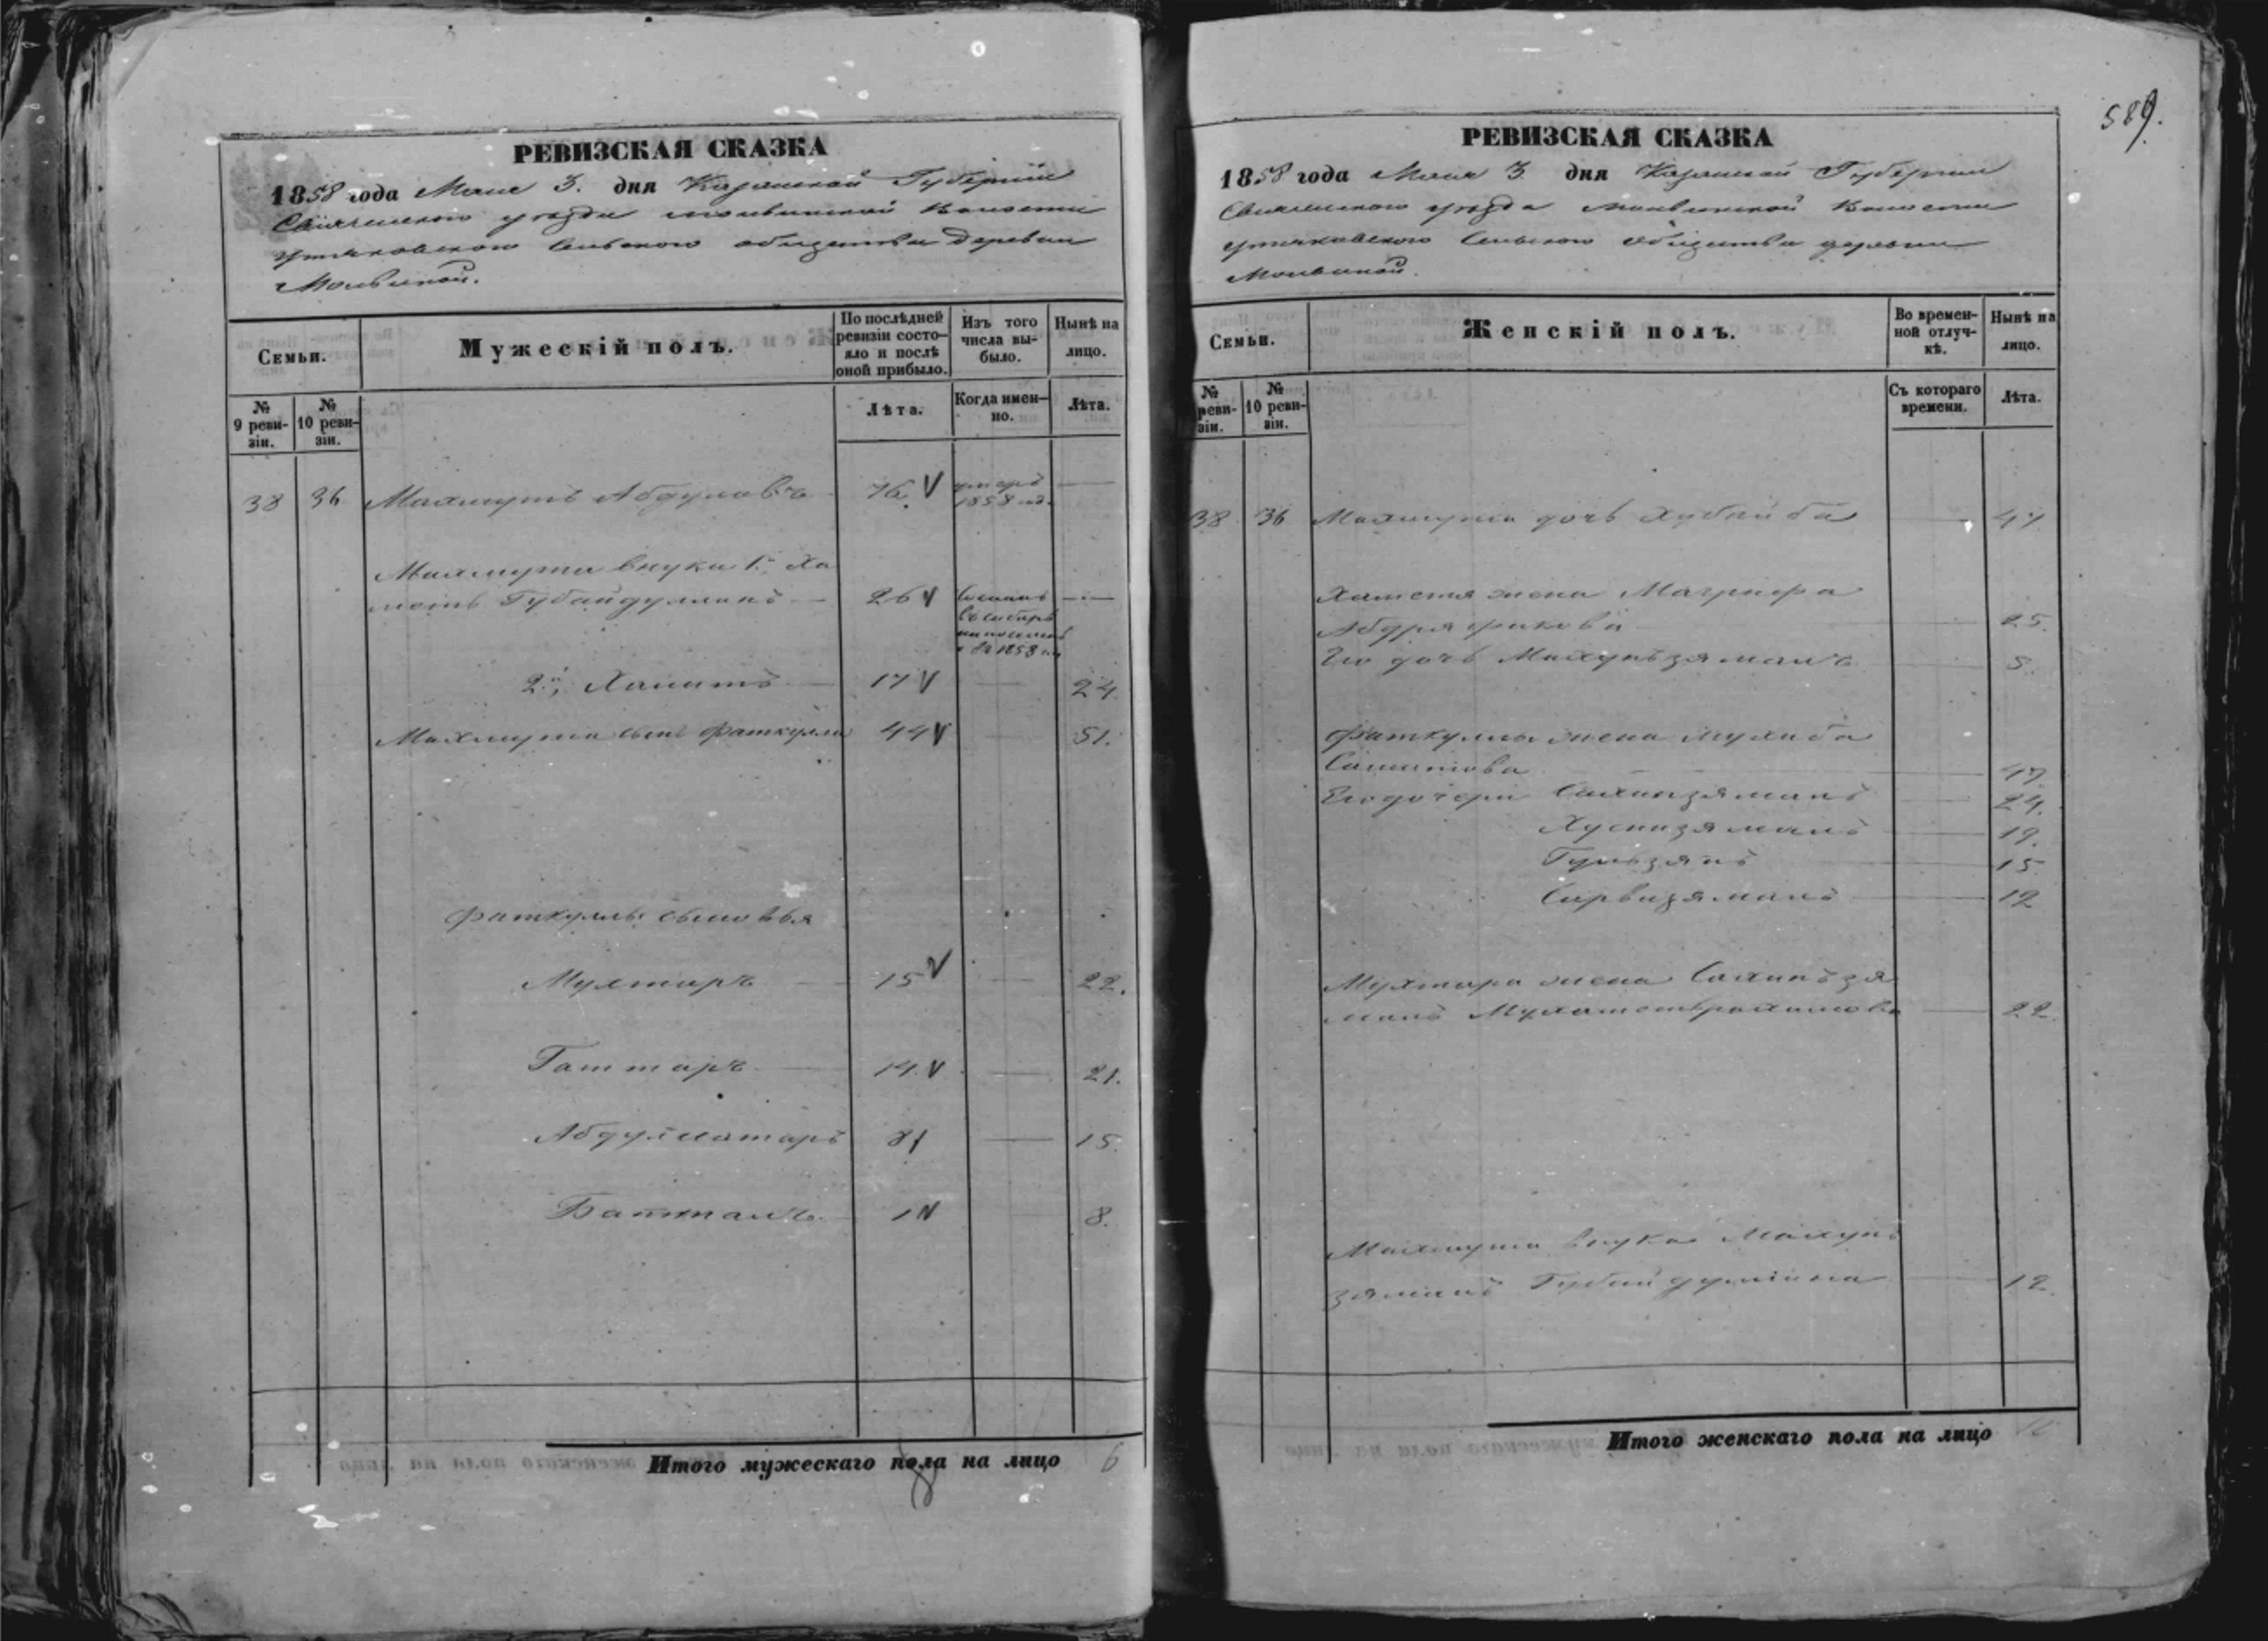 589.
РЕВИЗСКАЯ СКАЗКА
1858 года Мая 3. дня Казанской Губернии
Свияжского уезда Молвинской Волости
Утяковского Сельского общества деревни
Молвиной.
Семьи.
Мужескій полъ.
По послѣдней ревизіи состояло и послѣ оной прибыло.
Изъ того числа выбыло.
Нынѣ на лицо.
№ 9 ревизіи.
№ 10 ревизіи.
Лѣта.
Когда именно.
Лѣта.
38 36 Махмутъ Абдуловъ 76 умеръ 1858 го.
Махмута внуки 1й Ха
метъ Губайдуллинъ 26 Сосланъ въ Сибирь 1858
2й Хамитъ 17 — 24
Махмута сынъ Фаткулла 44 — 51.
Фаткуллы сыновья
Мухтаръ 15 — 22.
Гаттаръ 14 — 21.
Абдулсатаръ 8 — 15.
Батталъ 1 — 8.
Итого мужескаго пола на лицо 6
РЕВИЗСКАЯ СКАЗКА
1858 года Мая 3 дня Казанской Губернии
Свияжского уезда Молвинской Волости
Утяковского Сельского общества деревни
Молвиной.
Семьи.
Женскій полъ.
Во временной отлучкѣ.
Нынѣ на лицо.
№ ревизіи.
№ 10 ревизіи.
Съ котораго времени.
Лѣта.
38 36 Махмута дочь Хубайба — 47
Хаметя жена Магрифа
25.
Его дочь — 5.
Фаткуллы жена Мухиба
Самитова — 47
Его дочери 24.
Хуснизямалъ — 19.
Гульзянъ — 15
Сарвизямалъ — 12
Мухтара жена
22.
Махмута внука
Губайдуллина — 12.
Итого женскаго пола на лицо